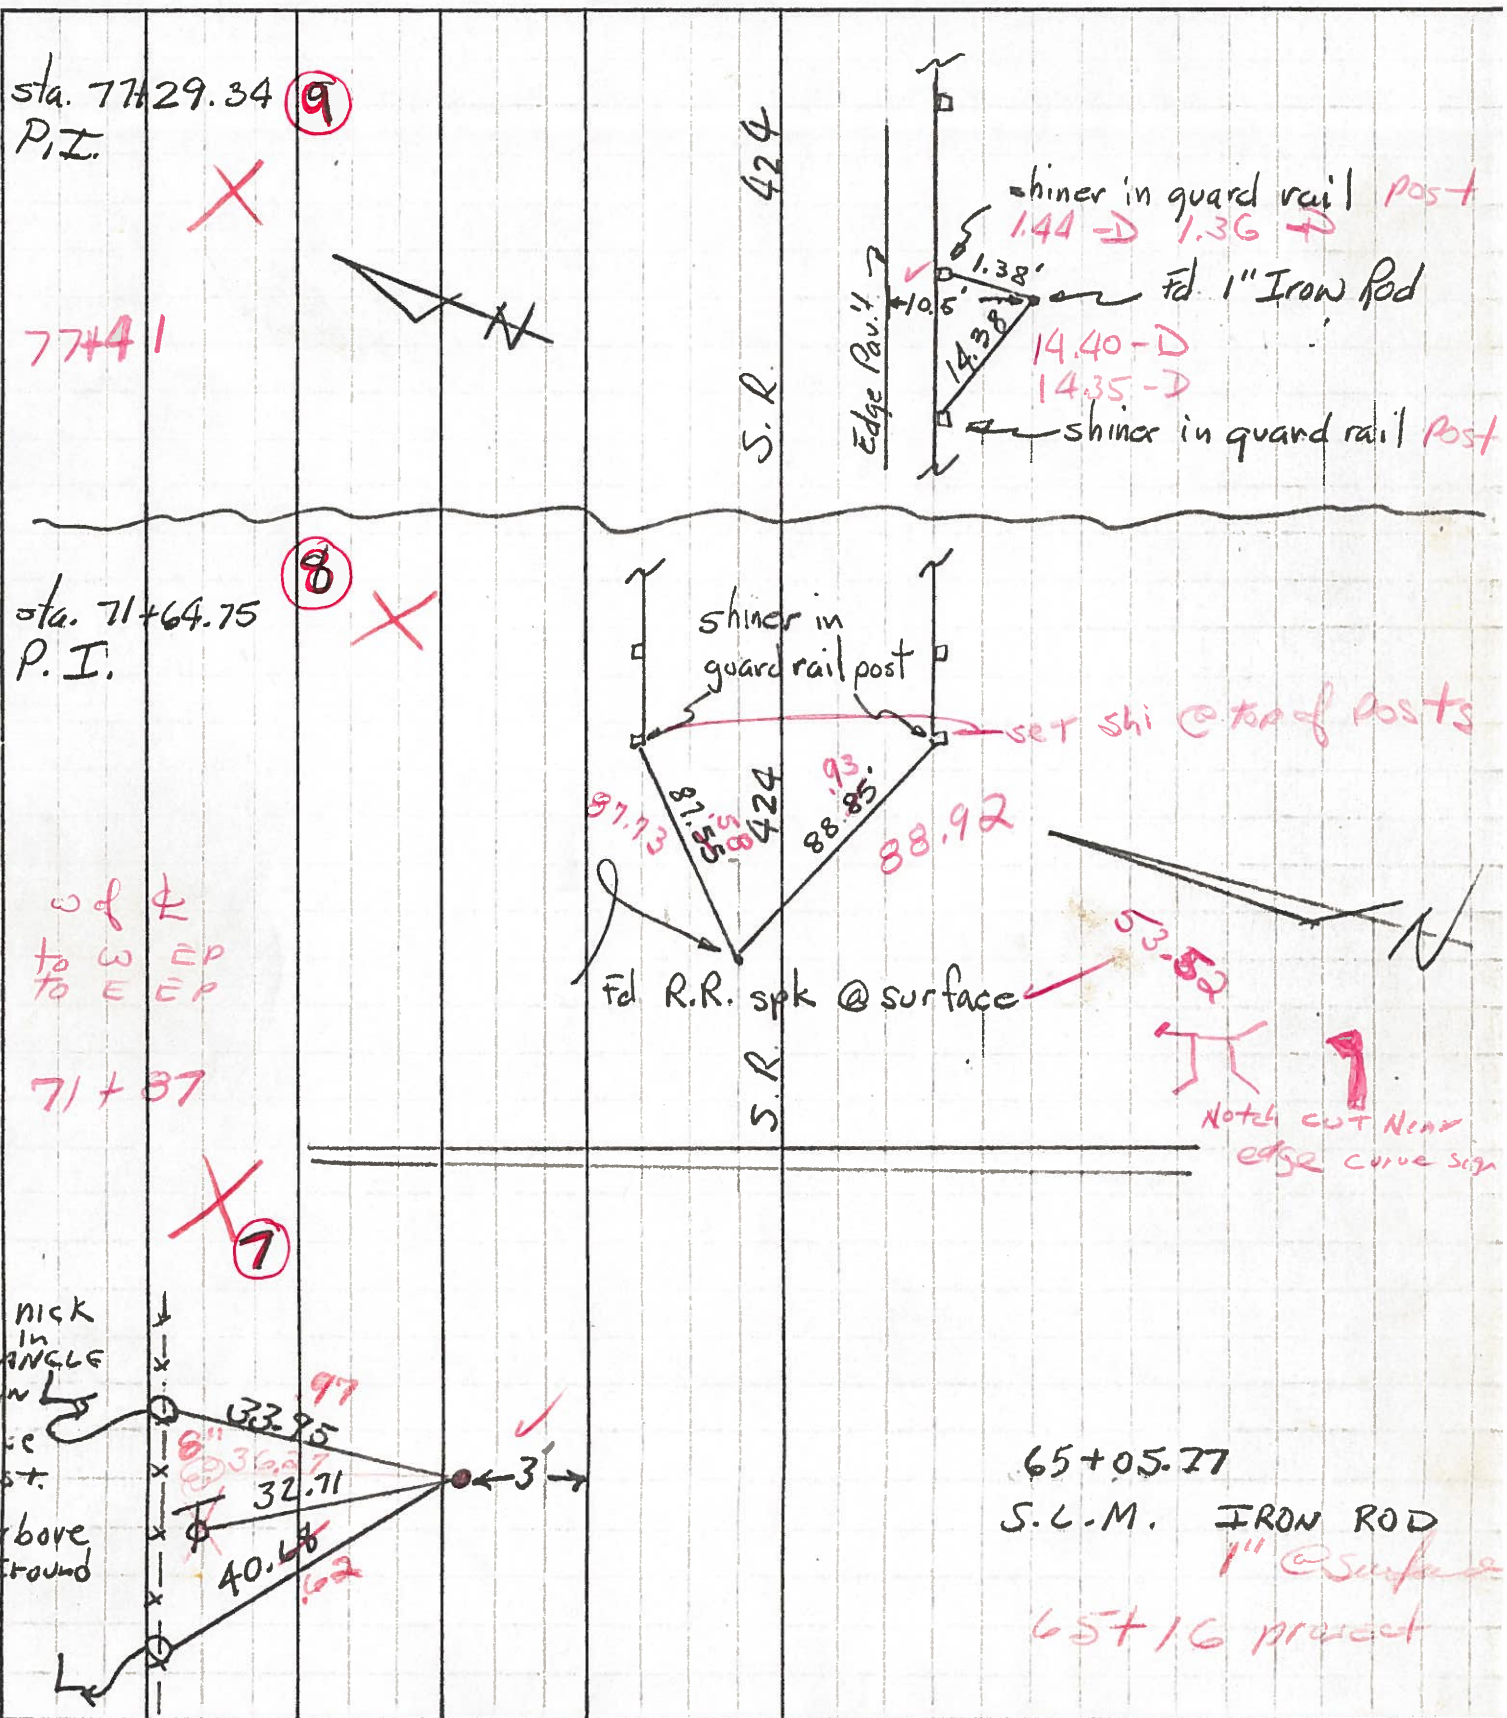 sta. 77+29.34
9
P.I.
77+41
N
S. R. 424
Edge Pav't.
shiner in guard rail post
1.44 -D 1.36 -D
1.38'
10.5'
Fd. 1" Iron Rod
14.38
14.40-D
14.35-D
shiner in guard rail Post
8
sta. 71+64.75
P. I.
shiner in
guard rail post
set shi @ top of Posts
87.73
87.55
.58
S. R. 424
.93
88.85
88.92
N
w of ℄
to W EP
to E EP
Fd R.R. spk @ surface
53.52
71+87
9
Notch cut Near
edge curve sign
7
nick
in
ANGLE
33.95
.97
8"
32.71
3'
bove
round
40.
.62
65+05.77
S.L.M. IRON ROD
1" @ Surface
65+16 project